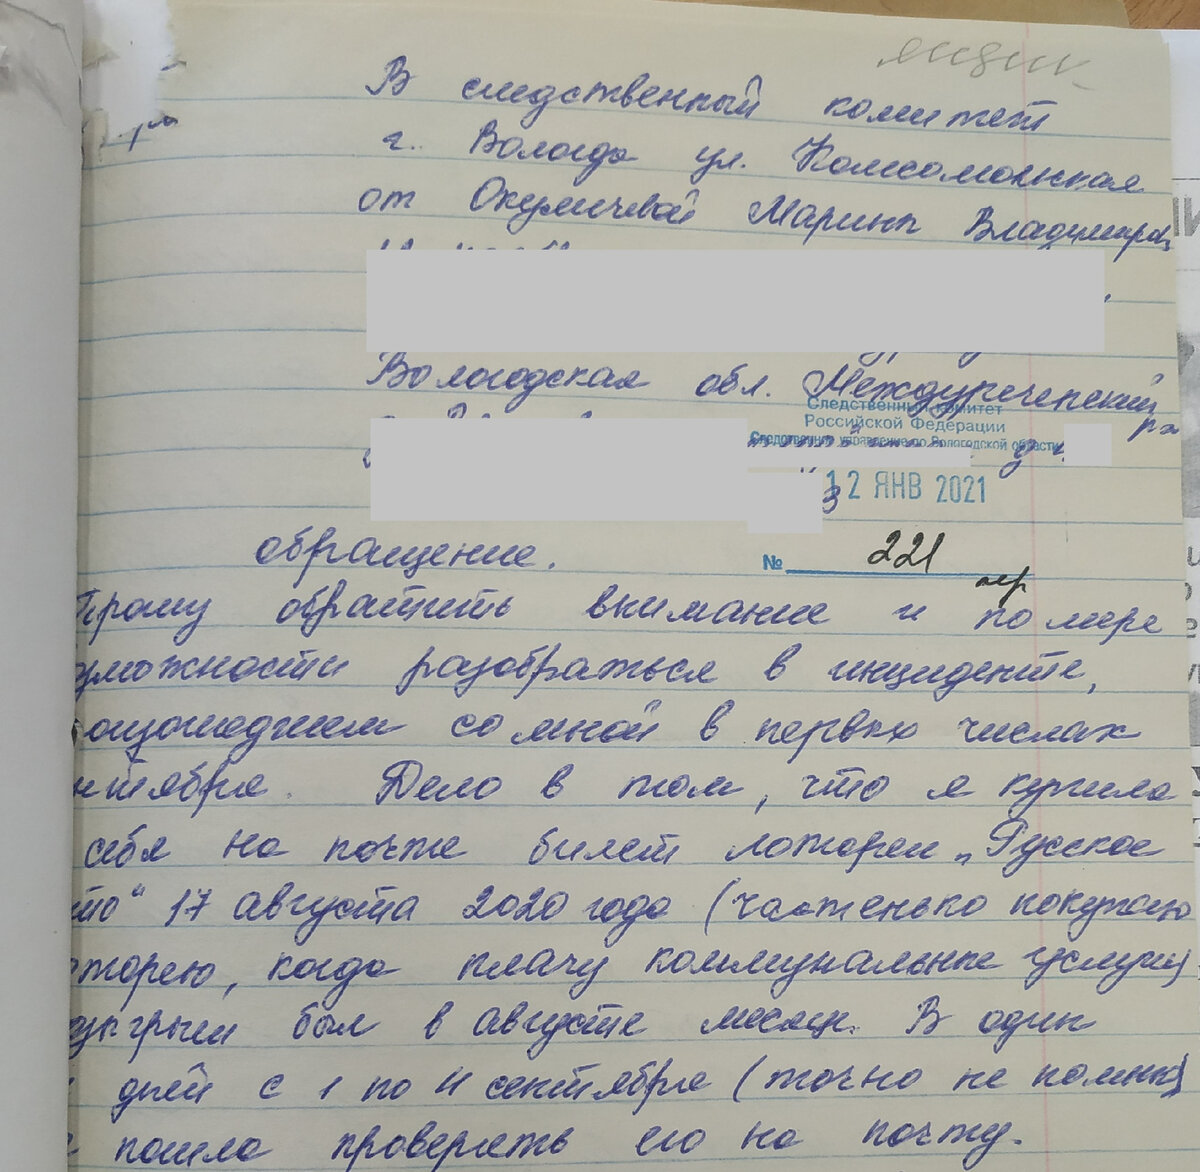 ящик
В следственный комитет
г. Вологда ул. Комсомольская
от Окуличевой Марины Владимиров
Вологодская обл. Междуреченский
р-н
Следственный комитет
Российской Федерации
Следственное управление по Вологодской области
12 ЯНВ 2021
обращение.
№ 221
пер
Прошу обратить внимание и по мере
зможности разобраться в инциденте,
оизошедшем со мной в первых числах
нтября. Дело в том, что я купила
себя на почте билет лотереи „Русское
то“ 17 августа 2020 года (частенько покупаю
отерею, когда плачу коммунальные услуги)
зыгрыш был в августе месяце. В один
дней с 1 по 4 сентября (точно не помню)
пошла проверять его на почту.